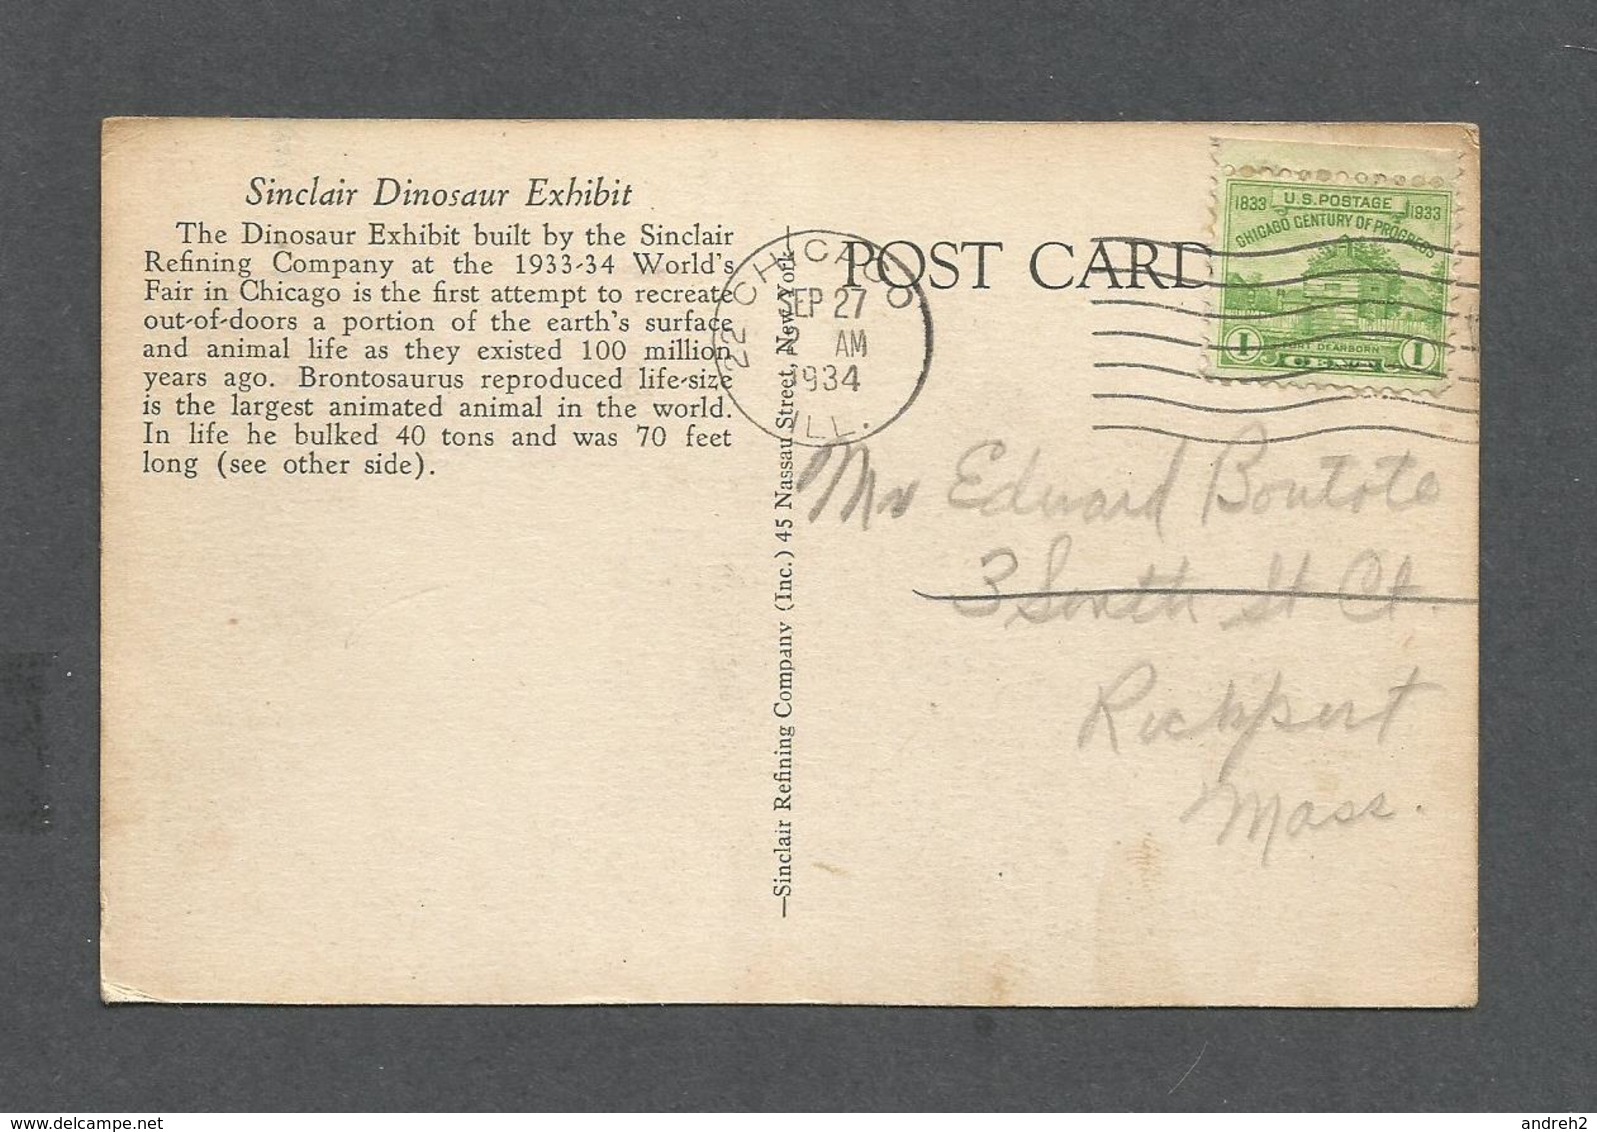 Sinclair Dinosaur Exhibit
The Dinosaur Exhibit built by the Sinclair
Refining Company at the 1933-34 World's
Fair in Chicago is the first attempt to recreate
out-of-doors a portion of the earth's surface
and animal life as they existed 100 million
years ago. Brontosaurus reproduced life-size
is the largest animated animal in the world.
In life he bulked 40 tons and was 70 feet
long (see other side).
—Sinclair Refining Company (Inc.) 45 Nassau Street, New York—
POST CARD
22 CHICAGO
SEP 27
2 AM
1934
ILL.
1833 U.S. POSTAGE 1933
CHICAGO CENTURY OF PROGRESS
FORT DEARBORN
1 CENT 1
Mr Edward
3 South St Ct.
Rockport
Mass.
delcampe.net
andreh2